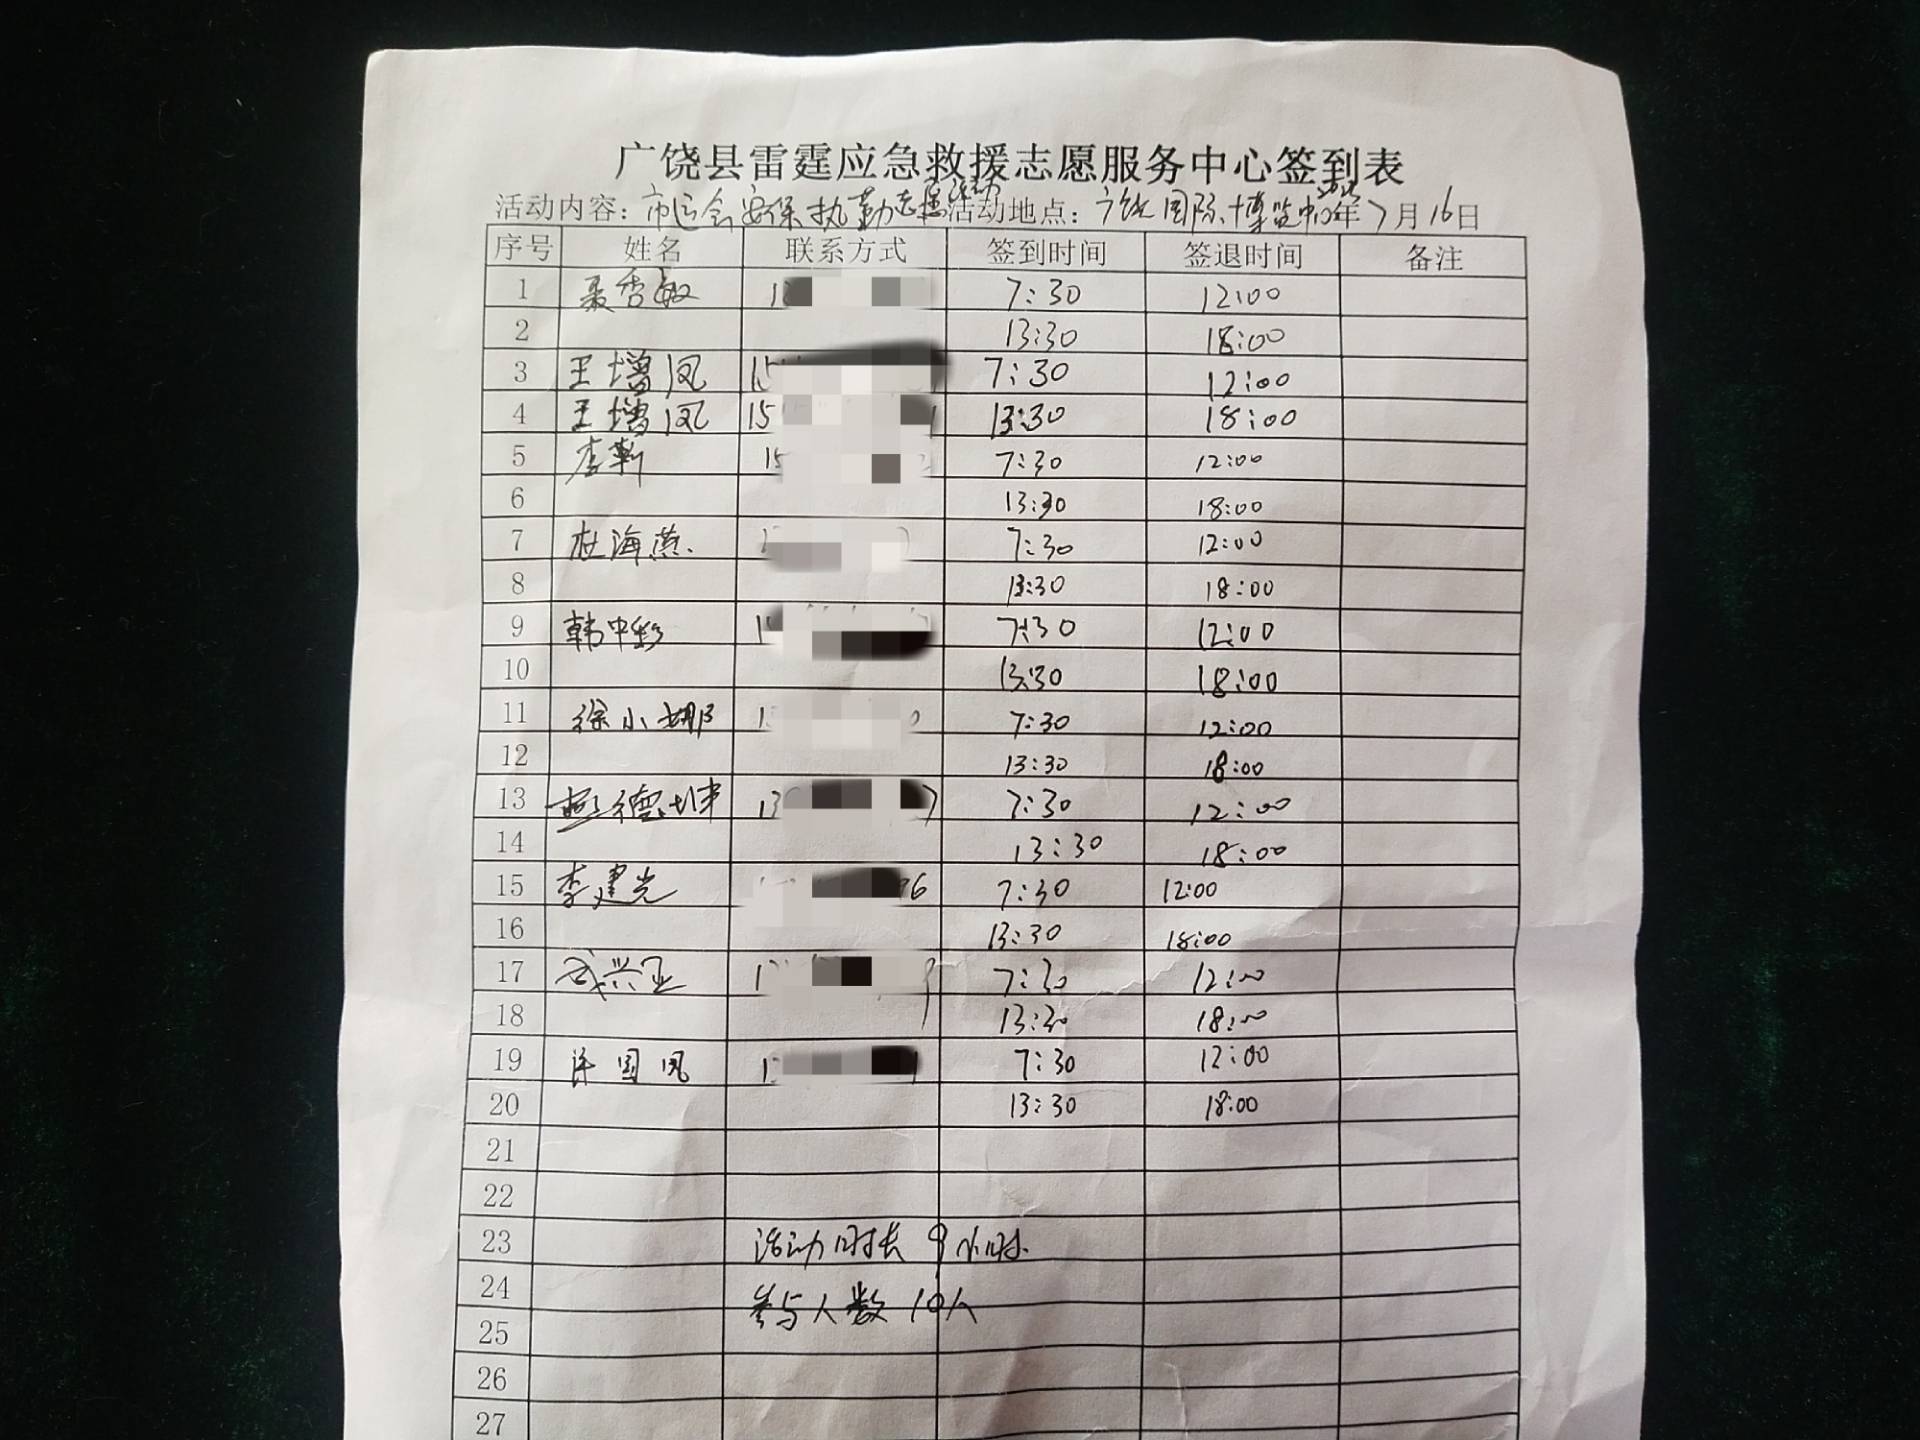 广饶县雷霆应急救援志愿服务中心签到表
活动内容：市运会安保执勤志愿活动 活动地点：广饶国际博览中心 年7月16日
序号 姓名 联系方式 签到时间 签退时间 备注
1 聂香敏 1 7:30 12:00
2 13:30 18:00
3 王增凤 15 7:30 12:00
4 王增凤 15 13:30 18:00
5 李靳 15 7:30 12:00
6 13:30 18:00
7 杜海燕 7:30 12:00
8 13:30 18:00
9 韩中彩 1 7:30 12:00
10 13:30 18:00
11 徐小娜 1 7:30 12:00
12 13:30 18:00
13 德 13 7 7:30 12:00
14 13:30 18:00
15 李建光 96 7:30 12:00
16 13:30 18:00
17 成兴亚 1 7:30 12:00
18 13:30 18:00
19 许国凤 1 7:30 12:00
20 13:30 18:00
21
22
23 活动时长 9小时
24 参与人数 10人
25
26
27